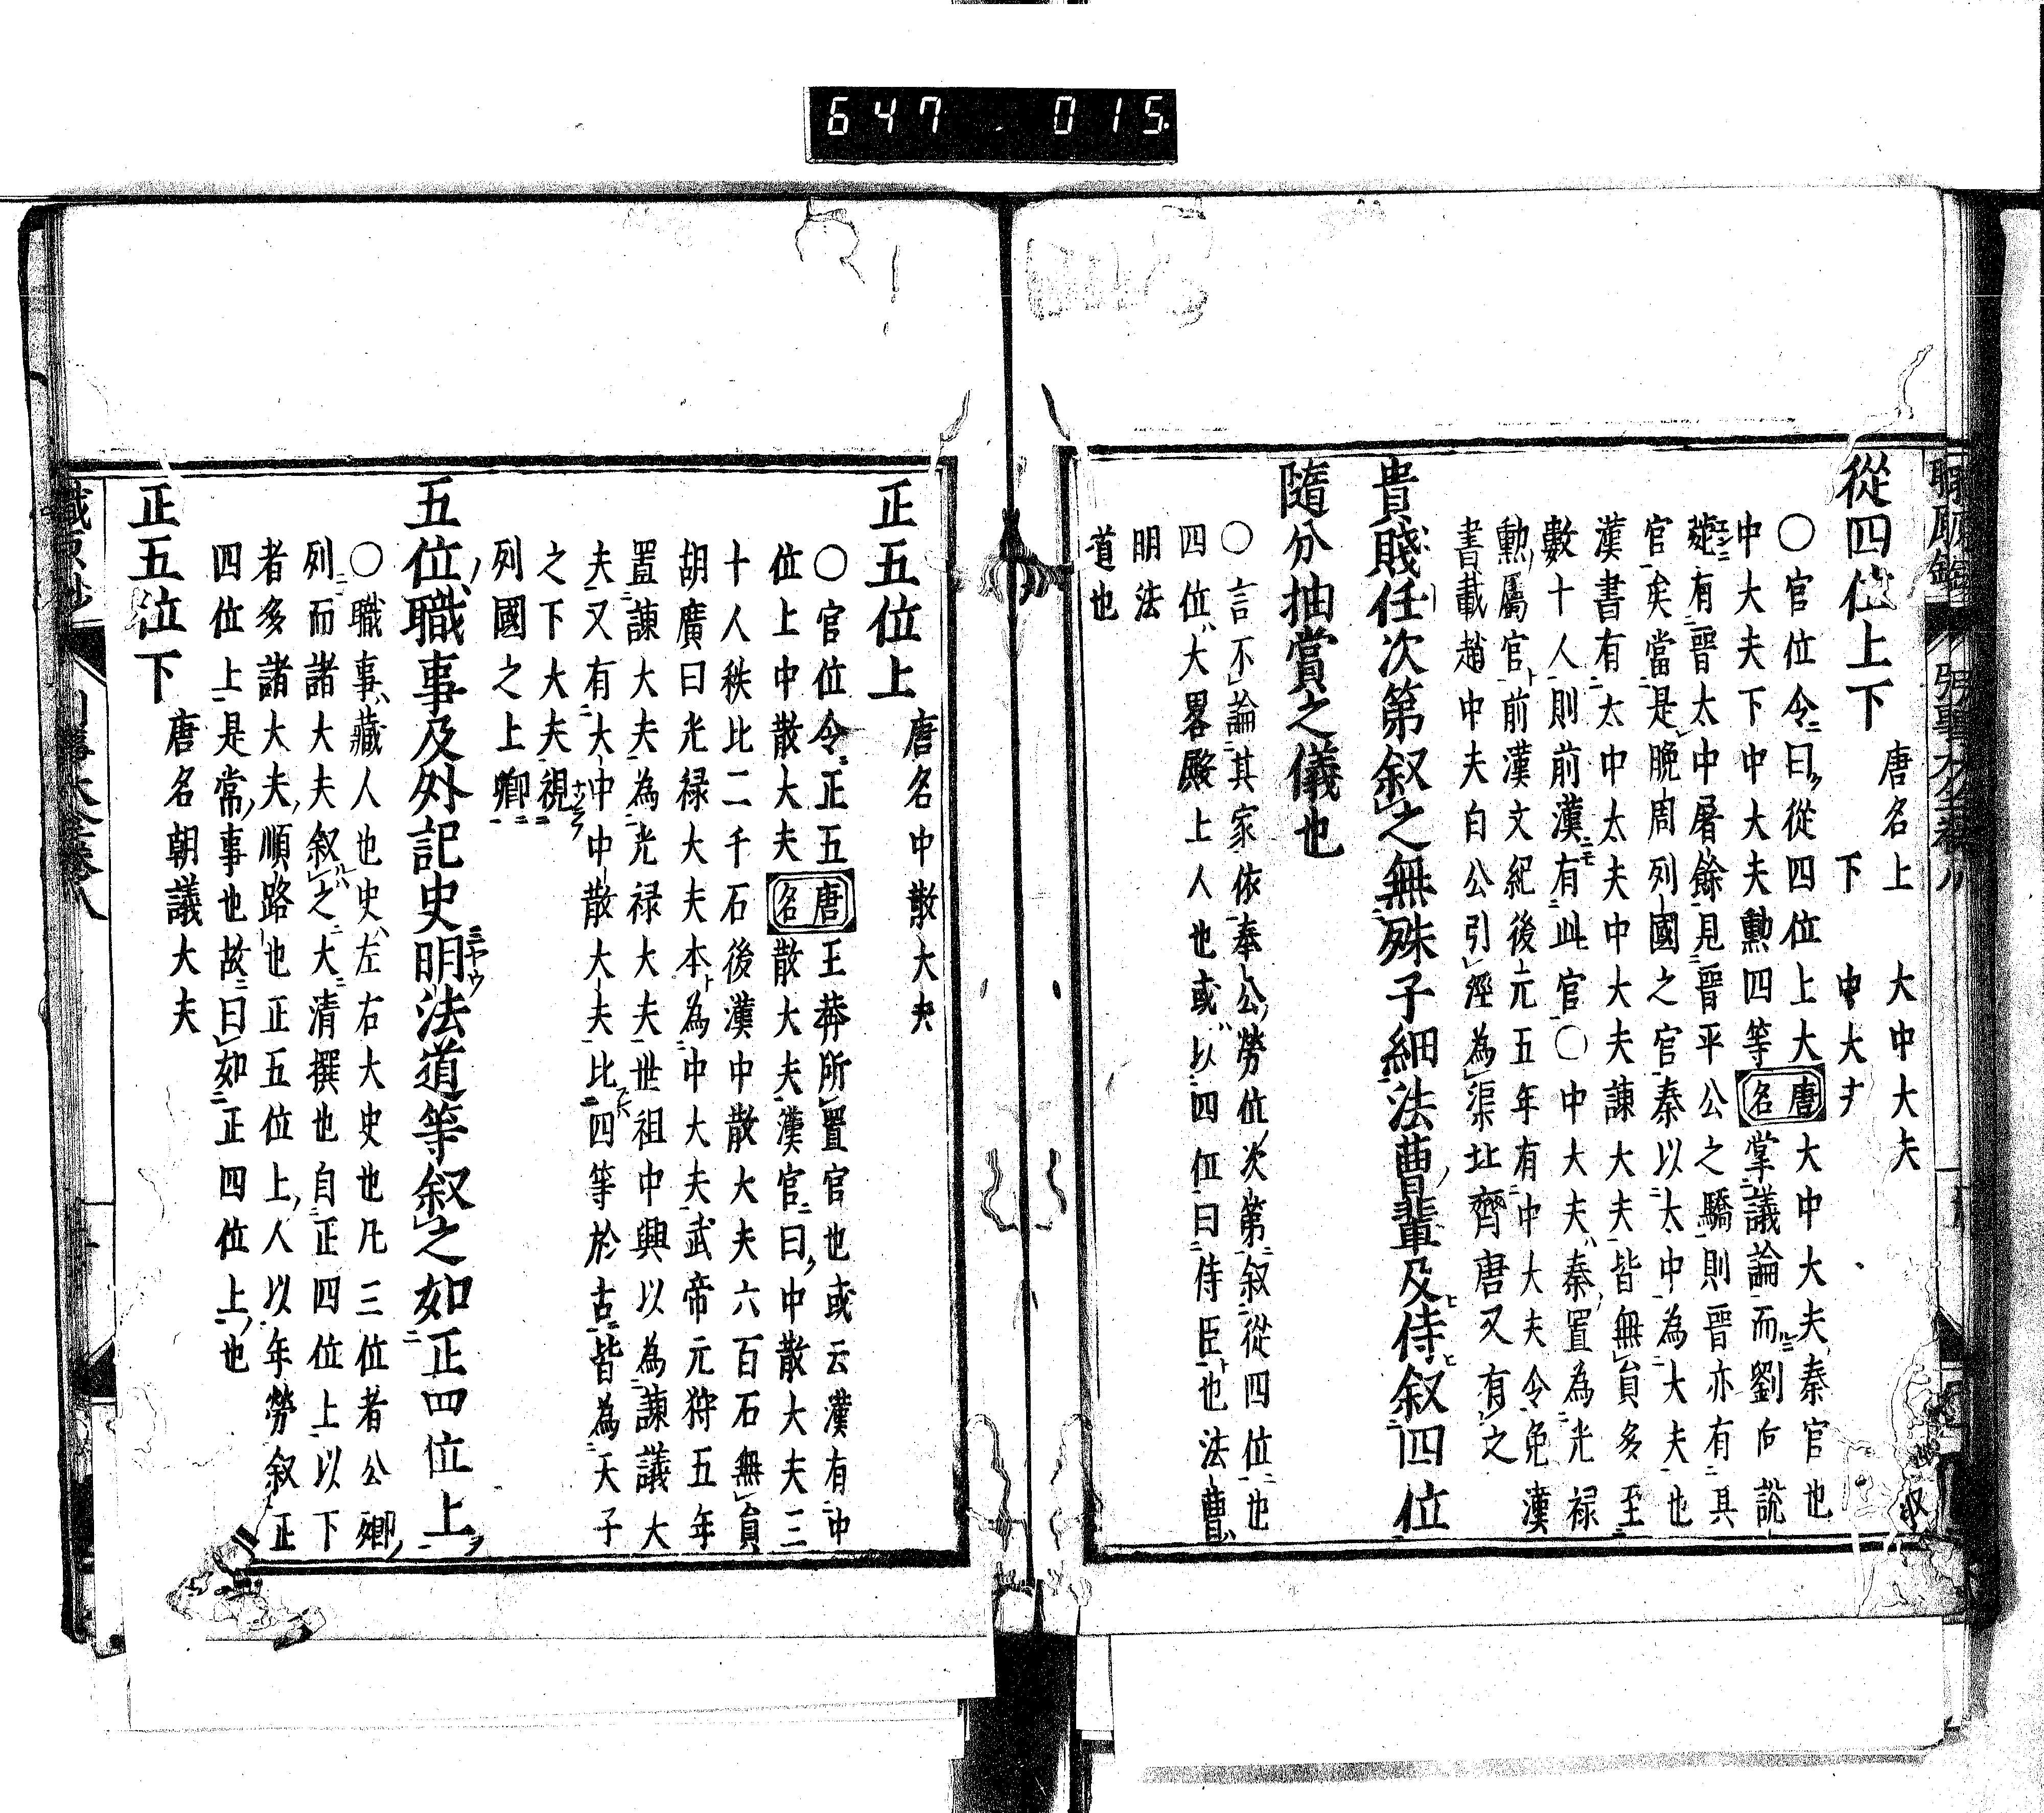 647 015
從四位上下 唐名上 大中大夫
下 中大夫
○官位令曰從四位上大唐名大中大夫秦官也
中大夫下中大夫勲四等掌議論而劉向説
苑有晋太中屠餘見晋平公之驕則晋亦有具
官矣當是晚周列國之官秦以太中為大夫也
漢書有太中太夫中大夫諫大夫皆無員多至
數十人則前漢有此官○中大夫秦置為光禄
勲屬官前漢文紀後元五年有中大夫令免漢
書載趙中夫白公引經為渠址齊唐又有之
貴賤任次第叙之無殊子細法曹輩及侍叙四位
隨分抽賞之儀也
○言不論其家依奉公勞位次第叙從四位也
四位大畧殿上人也或以四位曰侍臣也法曹
明法
道也
正五位上 唐名中散大夫
○官位令正五唐名王莽所置官也或云漢有中
位上中散大夫散大夫漢官曰中散大夫三
十人秩比二千石後漢中散大夫六百石無員
胡廣曰光禄大夫本為中大夫武帝元狩五年
置諫大夫為光禄大夫世祖中興以為諫議大
夫又有大中中散大夫比四等於古皆為天子
之下大夫視
列國之上卿
五位職事及外記史明法道等叙之如正四位上
○職事藏人也史左右大史也凡三位者公卿
列而諸大夫叙之大清撰也自正四位上以下
者多諸大夫順路也正五位上人以年勞叙正
四位上是常事也故曰如正四位上也
正五位下 唐名朝議大夫